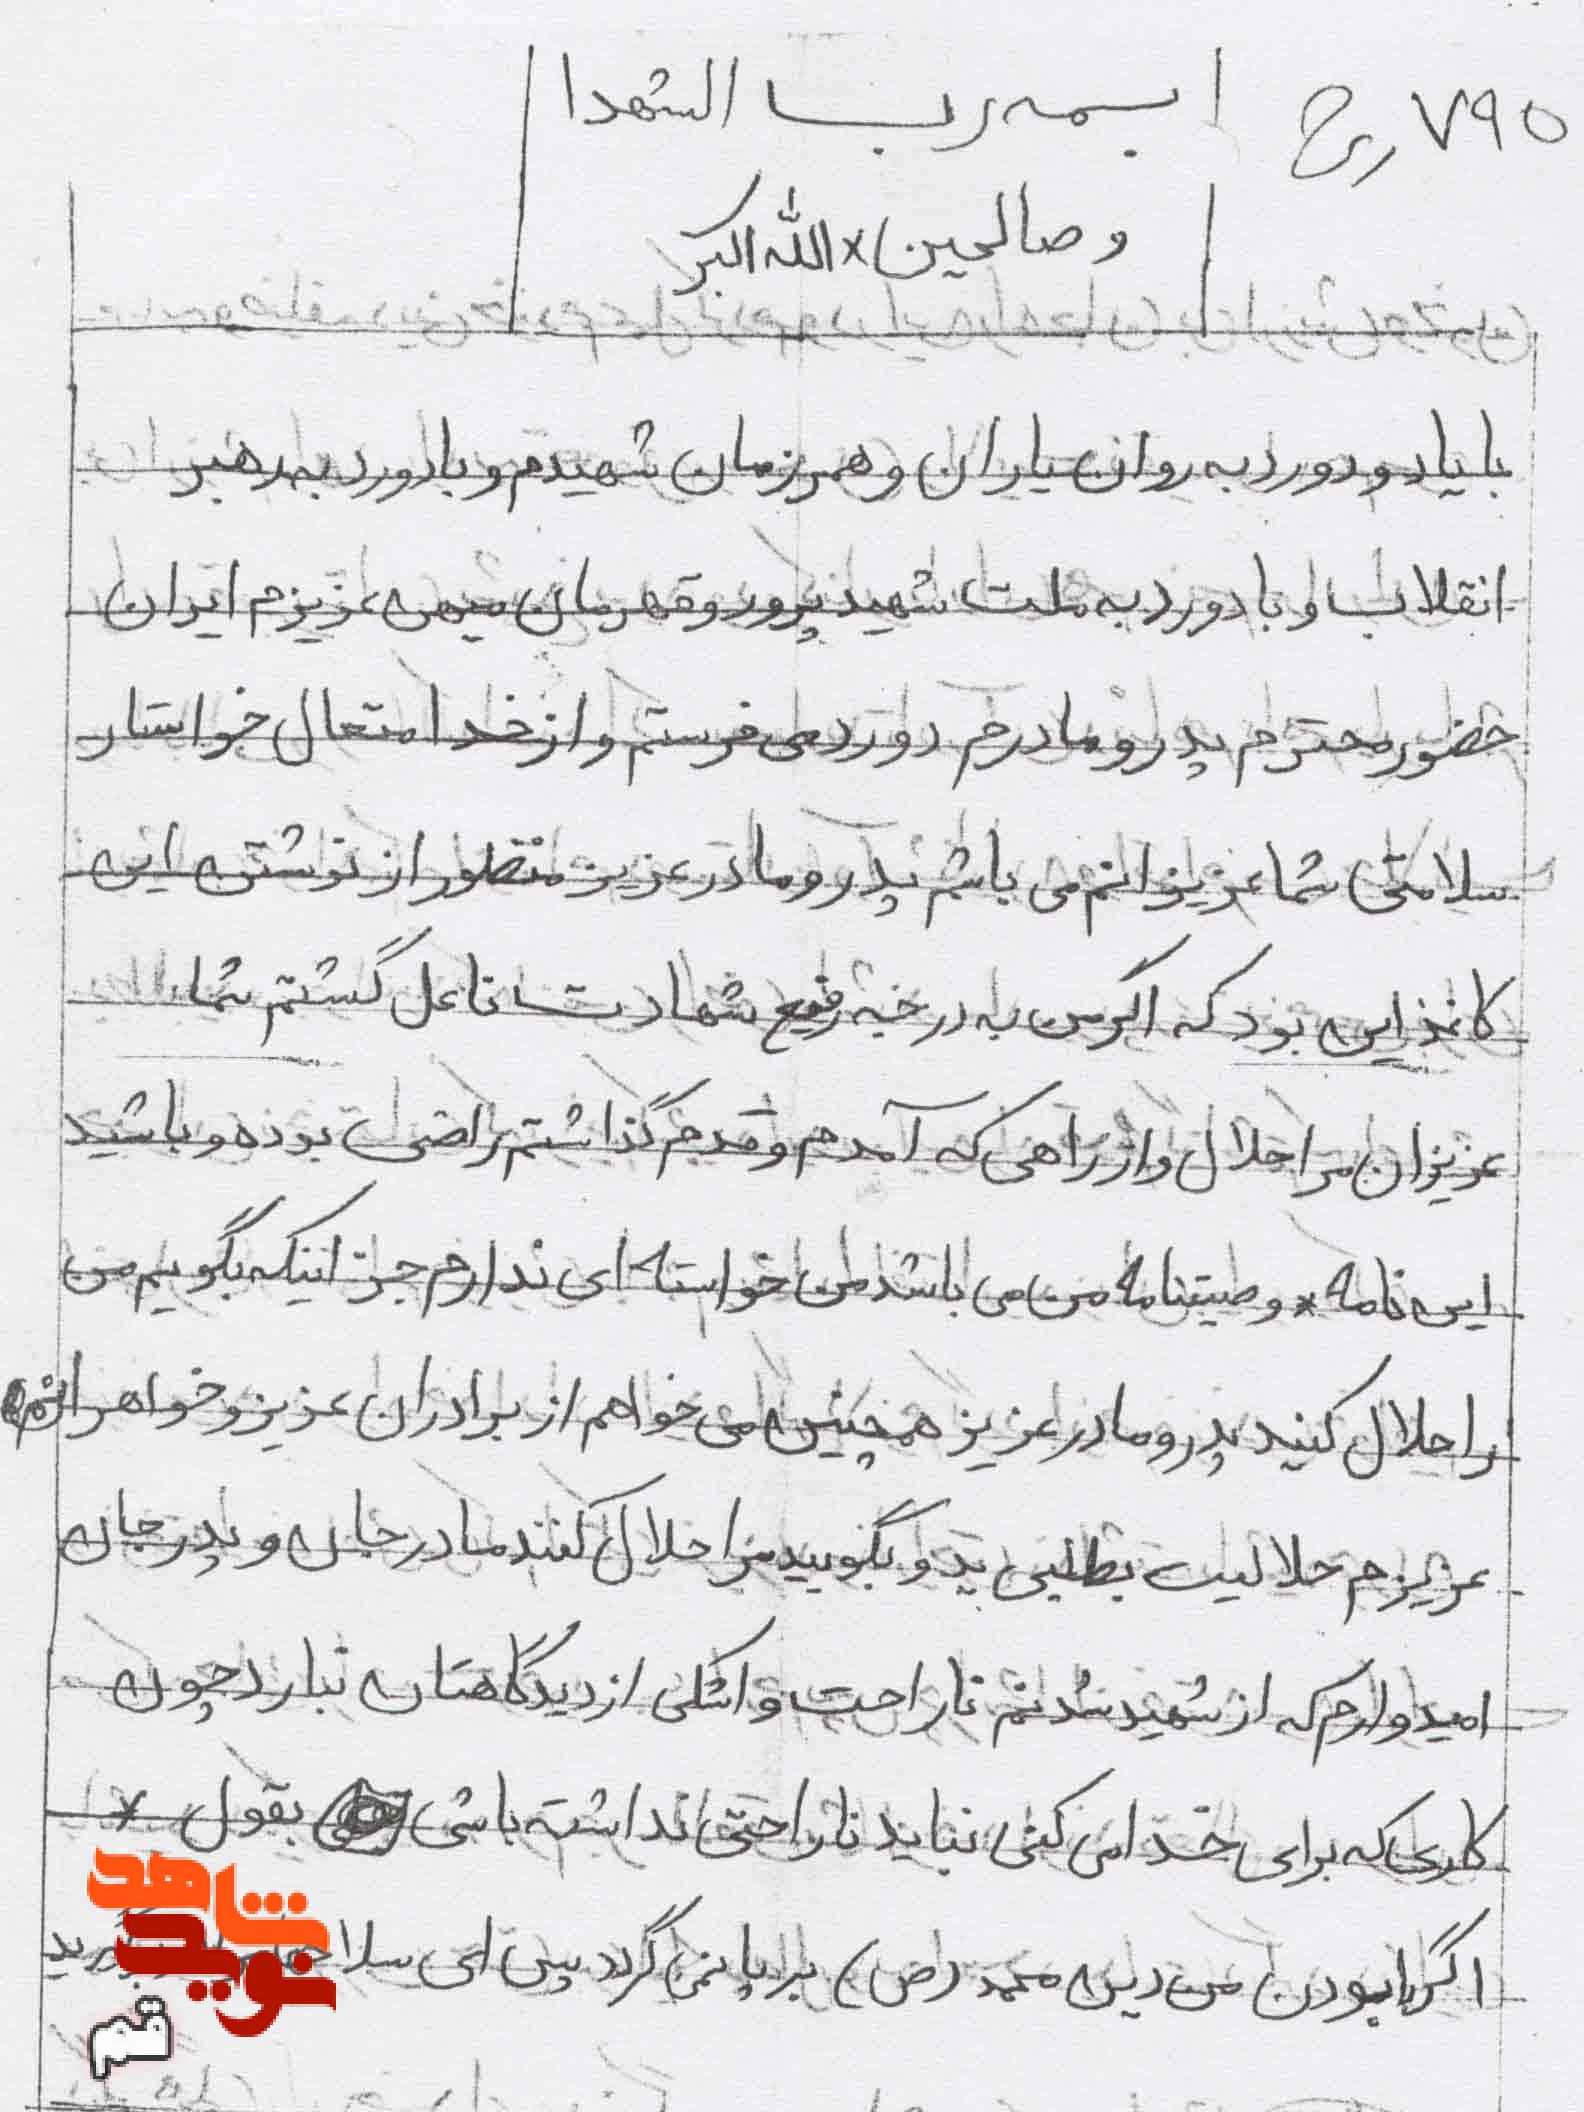 ۷۹۵ رح
بسمه رب الشهدا
و صالحین × الله اکبر
با یاد و دورد به روان یاران و همرزمان شهیدم و با دورد به رهبر
انقلاب و با دورد به ملت شهید پرور و قهرمان میهن عزیزم ایران
حضور محترم پدر و مادرم دورد می فرستم و از خدا متعال خواستار
سلامتی شما عزیزانم می باشم پدر و مادر عزیز منظور از نوشتن این
کاغذ این بود که اگر من به درجه رفیع شهادت ناعل گشتم شما
عزیزان مرا حلال و از راهی که آمدم و قدم گذاشتم راضی بوده و باشید
این نامه * وصیتنامه من می باشد من خواسته ای ندارم جز اینکه بگویم من
را حلال کنید پدر و مادر عزیز همچنین می خواهم از برادران عزیز و خواهرانم
عزیزم حلالیت بطلبی ید و بگویید مرا حلال کنند مادر جان و پدر جان
امیدوارم که از شهید شدنم ناراحت و اشکی از دیدگاهتان نبارد چون
کاری که برای خدا می کنی نباید ناراحتی نداشته باشی بقول *
اگر با بودن من دین محمد (ص) بر پا نمی گردد پس ای سلاحها
شاهد
نوید
قم